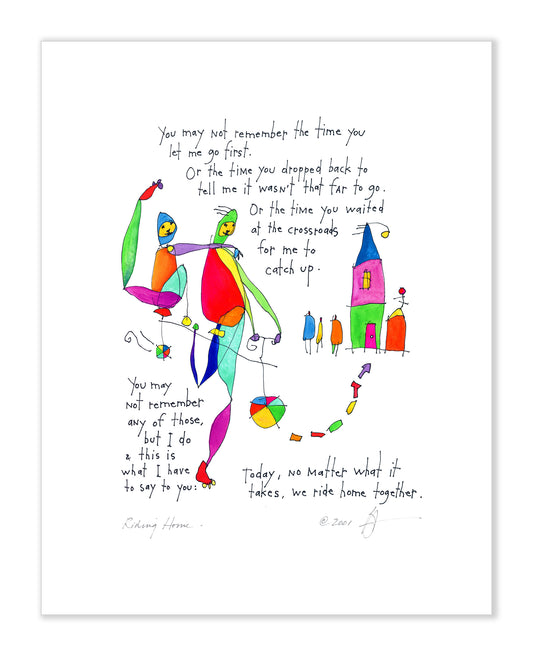 You may not remember the time you
let me go first.
Or the time you dropped back to
tell me it wasn't that far to go.
Or the time you waited
at the crossroads
for me to
catch up.
You may
not remember
any of those,
but I do
& this is
what I have
to say to you:
Today, no matter what it
takes, we ride home together.
Riding Home
© 2001